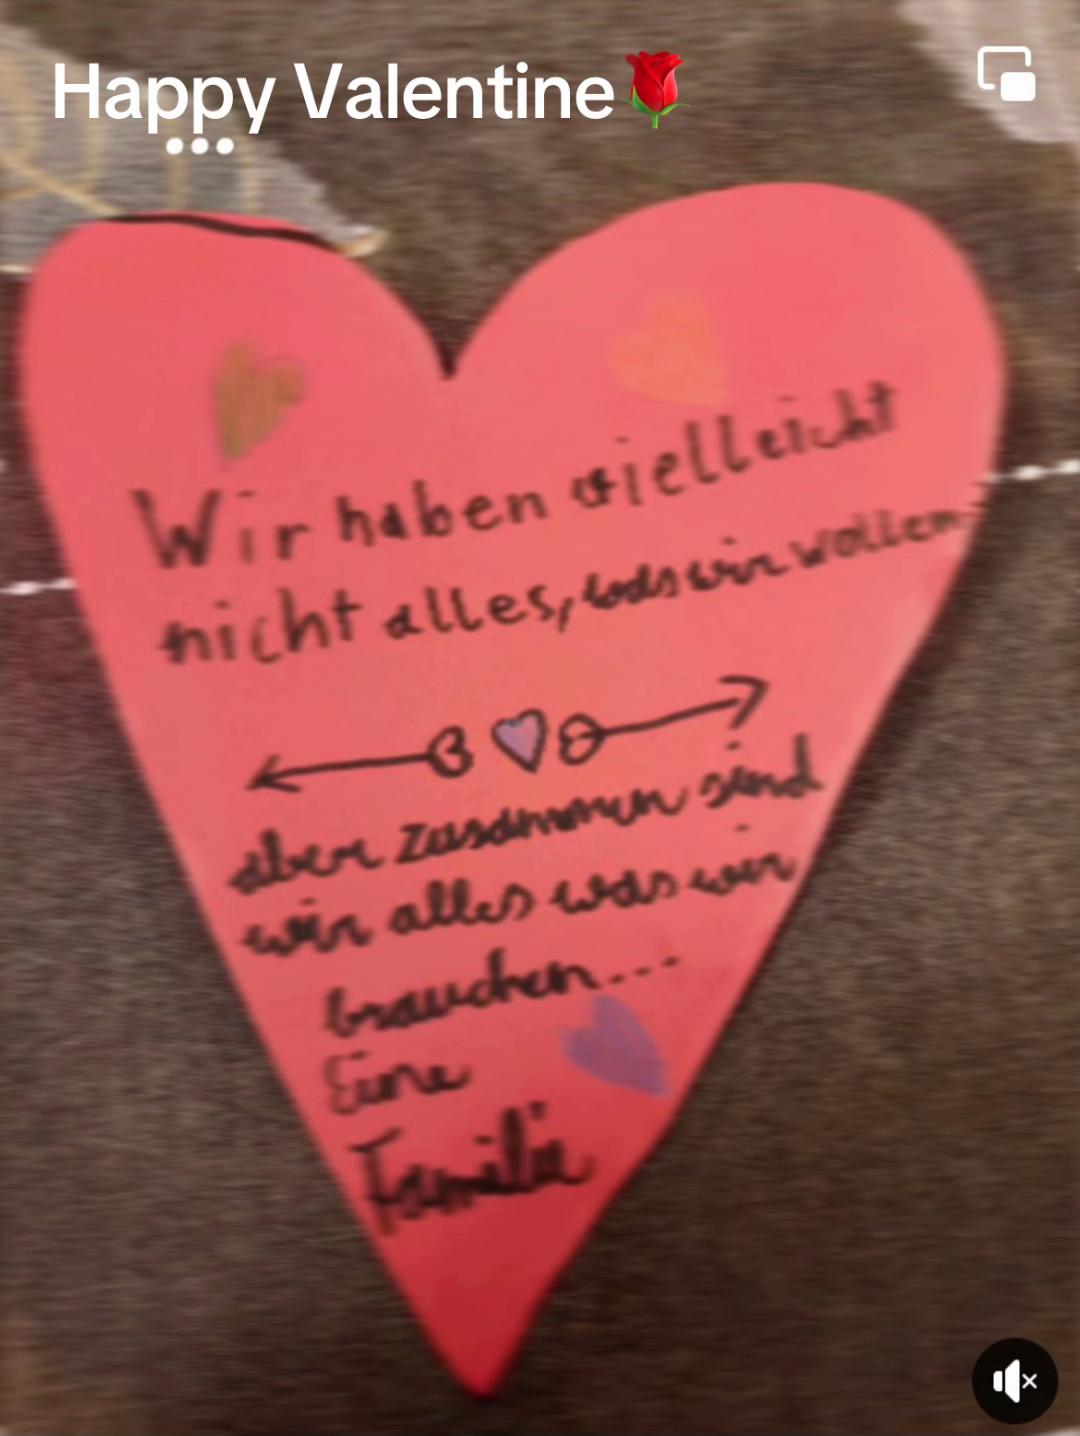 Happy Valentine🌹
Wir haben vielleicht
nicht alles, was wir wollen
aber zusammen sind
wir alles was wir
brauchen...
Eine
Familie